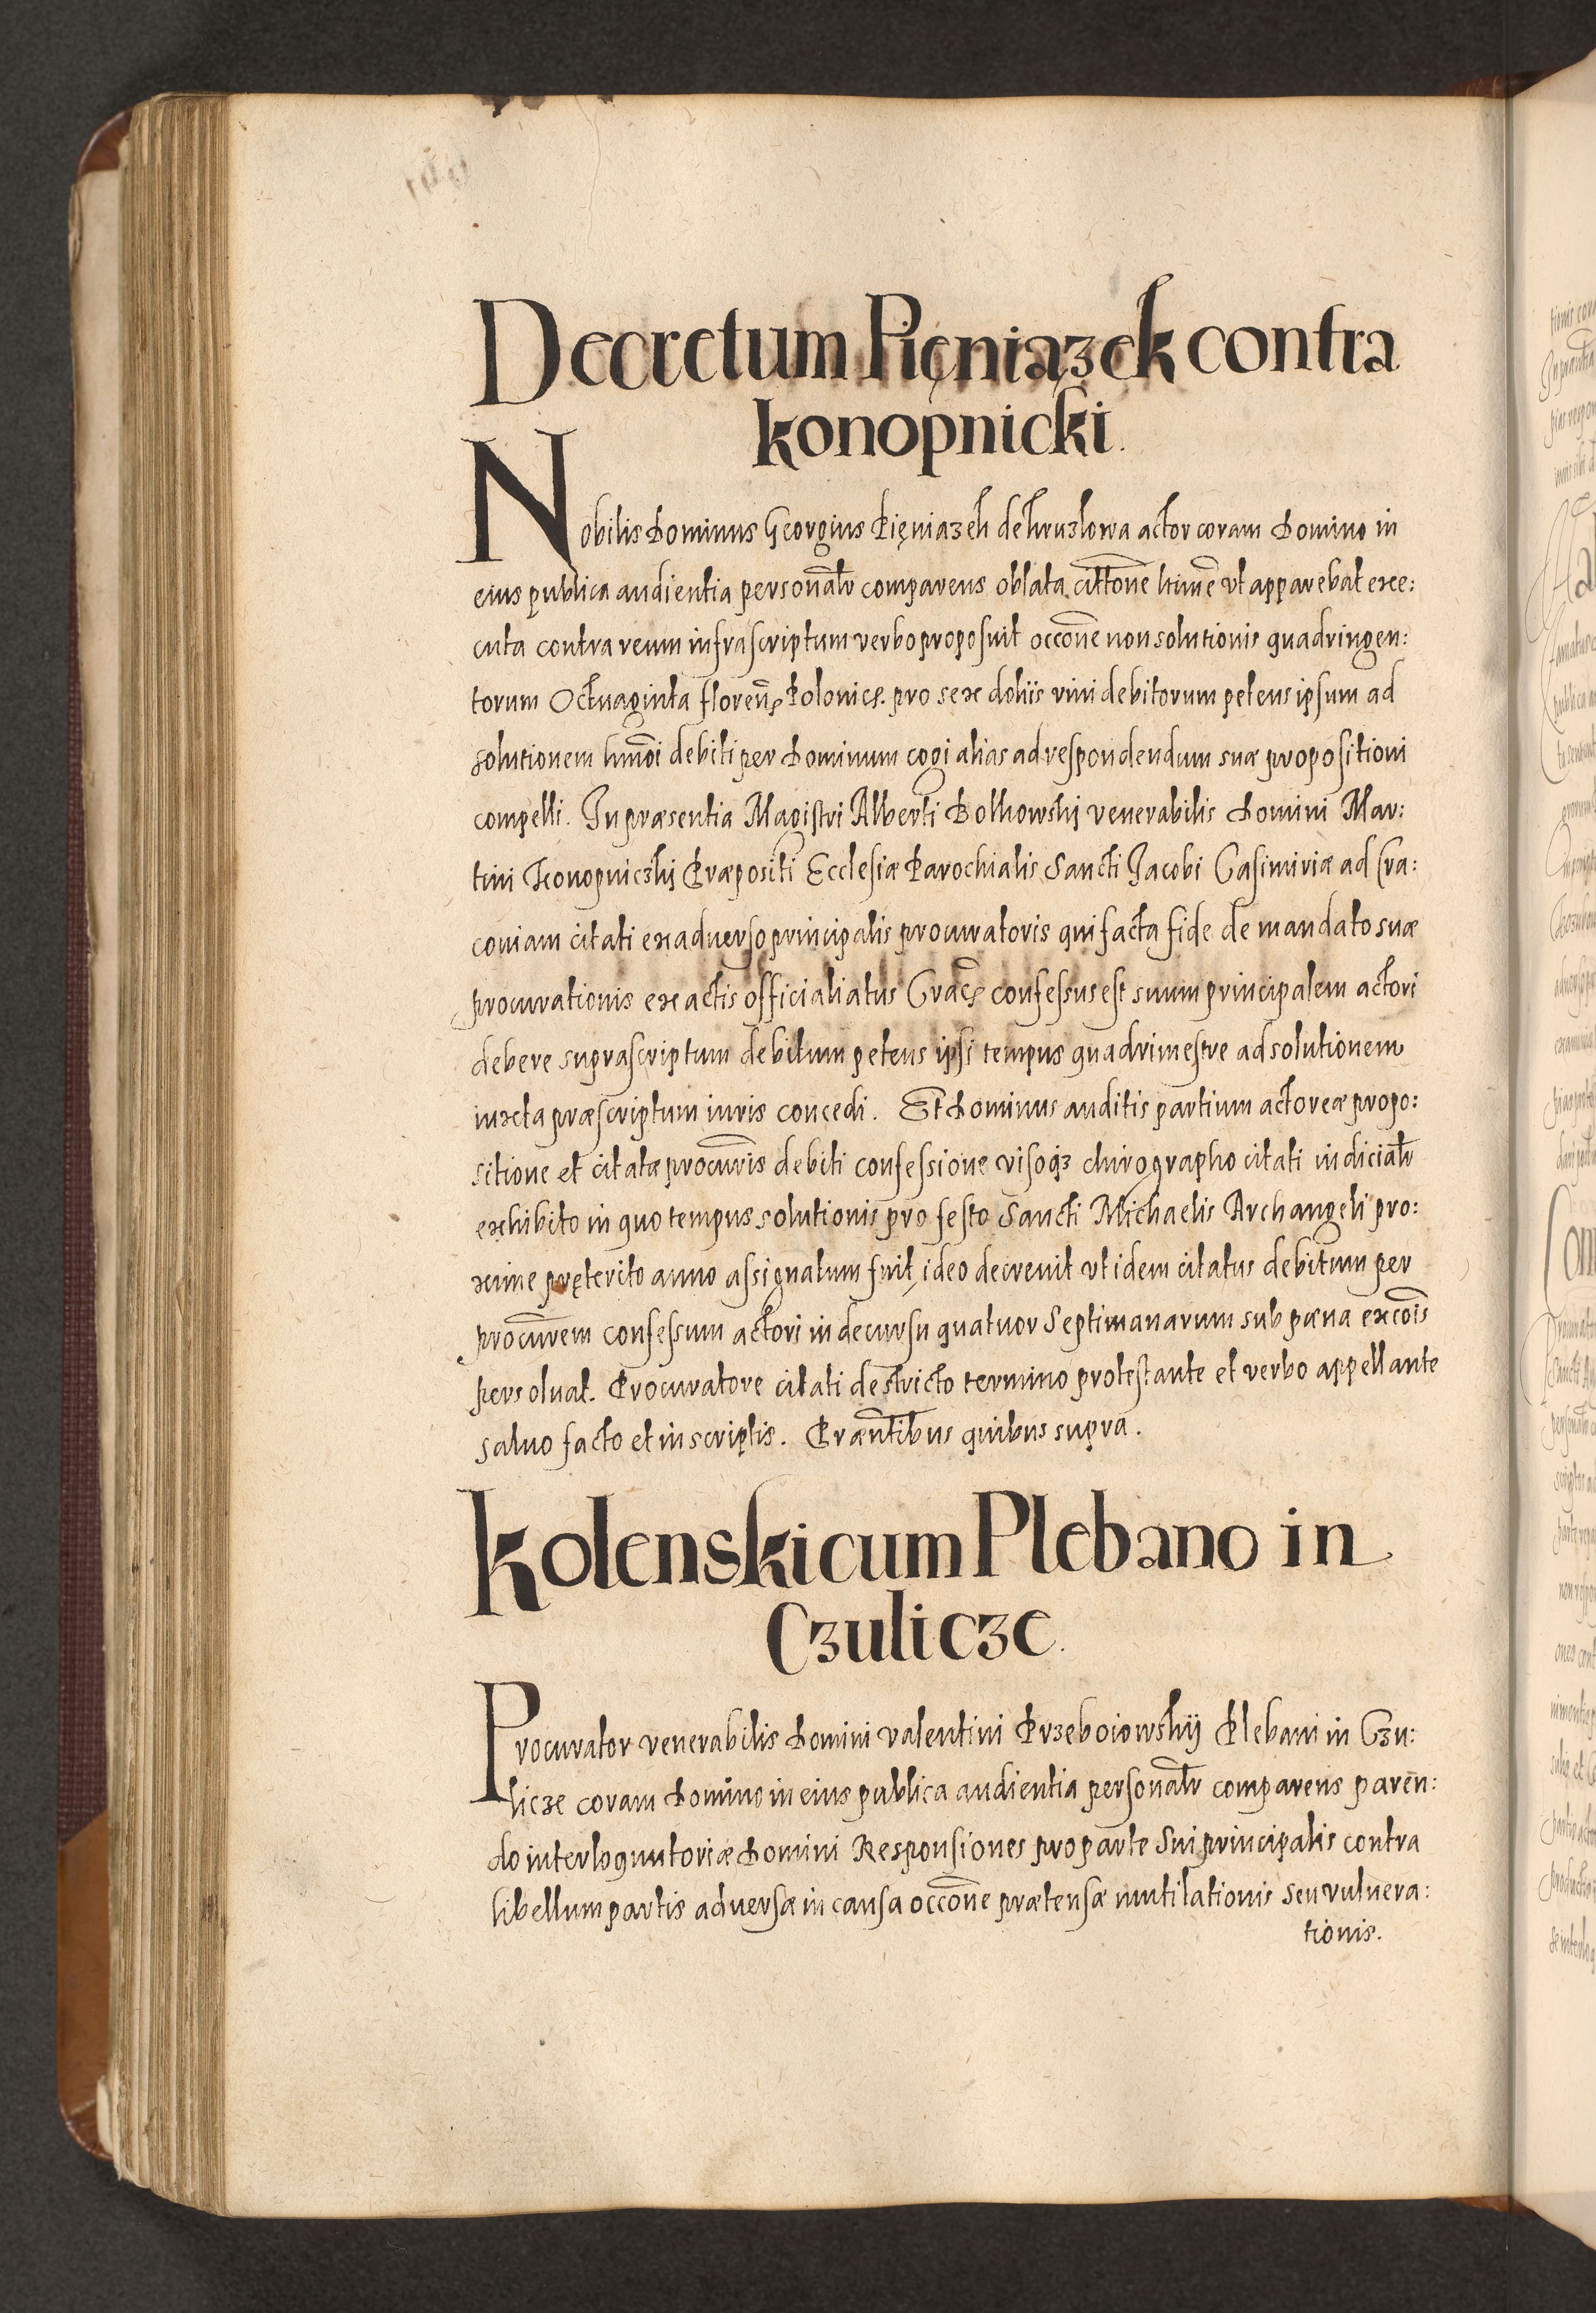 Decretum Pięniązek contra
konopnicki.
Nobilis Dominus Georgius Pięniązek de kruzlowa actor coram Domino in
eius publica audientia personalr comparens oblata cittone hmoi vt apparebat exe:
cuta contra reum infrascriptum verbo proposuit occone non solutionis quadringen:
torum Octuaginta floren Polonicę. pro sex doliis vini debitorum petens ipsum ad
solutionem hmoi debiti per Dominum cogi alias ad respondendum suæ propositioni
compelli. In præsentia Magistri Alberti venerabilis Domini Mar:
tini Konopniczkij Præpositi Ecclesiæ Parochialis Sancti Jacobi Casimiriæ ad Cra:
couiam citati ex aduerso principalis procuratoris qui facta fide de mandato suæ
procurationis ex actis officialiatus Crac confessus est suum principalem actori
debere suprascriptum debitum petens ipsi tempus quadrimestre ad solutionem
iuxta præscriptum iuris concedi. Et Dominus auditis partium actoreæ propo:
sitione et citatæ procuris debiti confessione visoqȝ chirographo citati iudicialr
exhibito in quo tempus solutionis pro festo Sancti Michaelis Archangeli pro:
xime pręterito anno assignatum fuit, ideo decreuit vt idem citatus debitum per
procurem confessum actori in decursu quatuor Septimanarum sub pæna excois
persoluat. Procuratore citati de stricto termino protestante et verbo appellante
saluo facto et in scriptis. Præntibus quibus supra.
Kolenski cum Plebano in
Czulicze.
Procurator venerabilis Domini Valentini Przeboiowskij Plebani in Czu:
licze coram Domino in eius publica audientia personalr comparens paren:
do interloquutoriæ Domini Responsiones pro parte Sui principalis contra
libellum partis aduersæ in causa occone prætensæ mutilationis seu vulnera:
tionis.